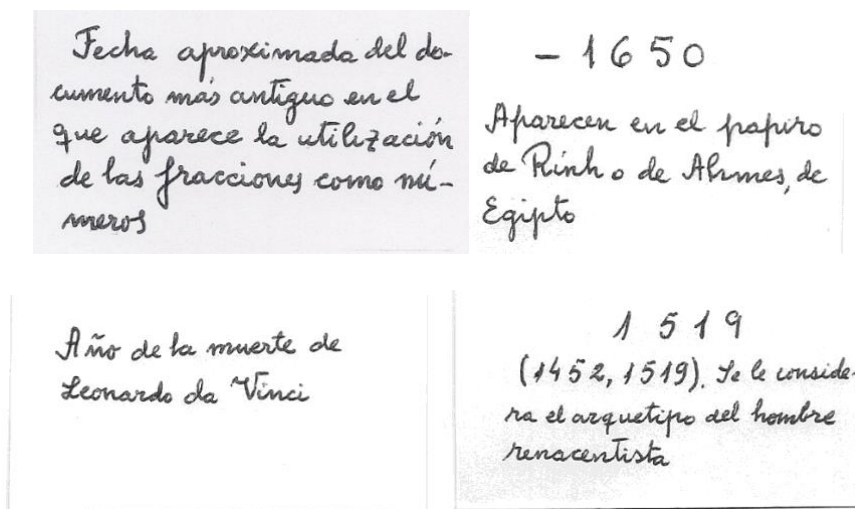 Fecha aproximada del do-
cumento más antiguo en el
que aparece la utilización
de las fracciones como nú-
meros
- 1650
Aparecen en el papiro
de Rinh o de Ahmes, de
Egipto
Año de la muerte de
Leonardo da Vinci
1519
(1452, 1519). Se le conside-
ra el arquetipo del hombre
renacentista